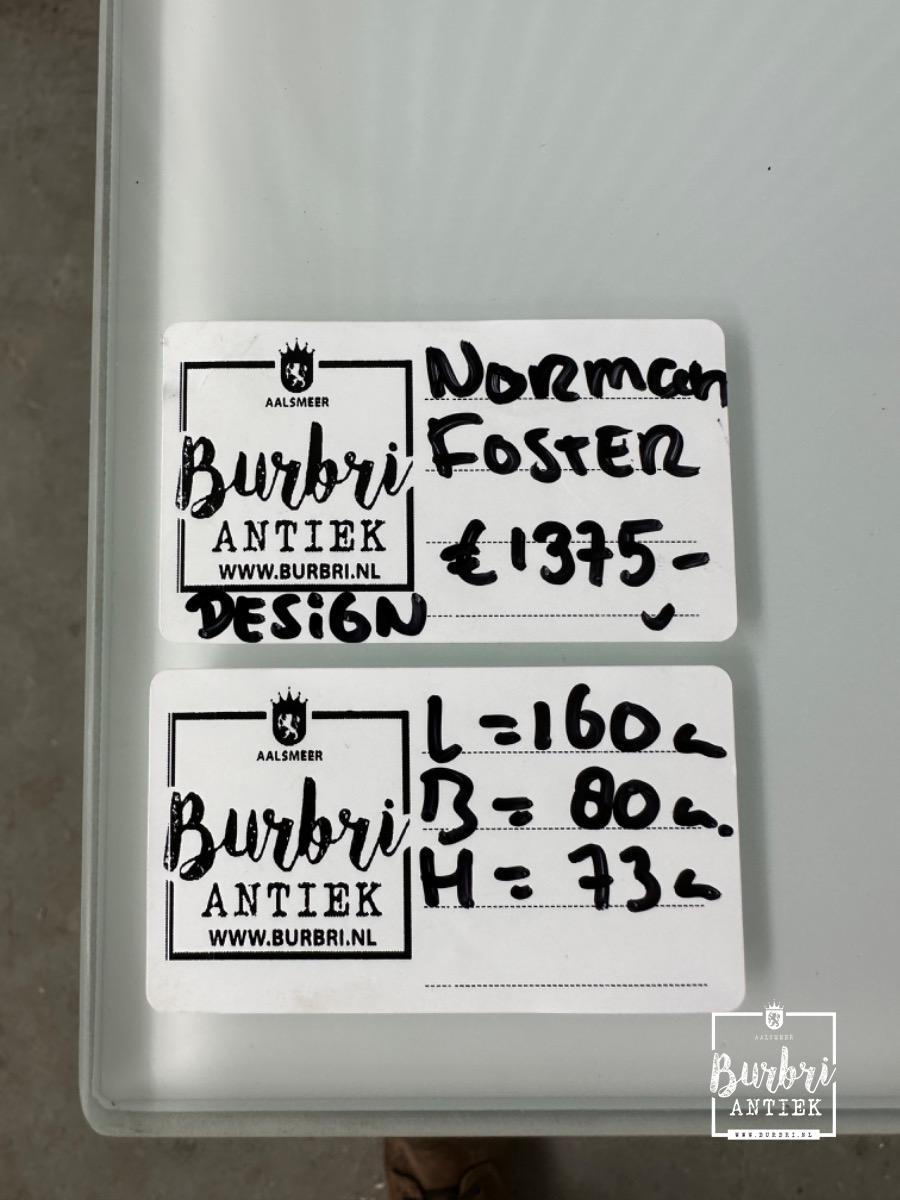 AALSMEER
Burbri
ANTIEK
WWW.BURBRI.NL
DESiGN
Norman
FOSTER
€1375-
AALSMEER
Burbri
ANTIEK
WWW.BURBRI.NL
L = 160 c
B = 80 c.
H = 73 c
AALSMEER
Burbri
ANTIEK
WWW.BURBRI.NL